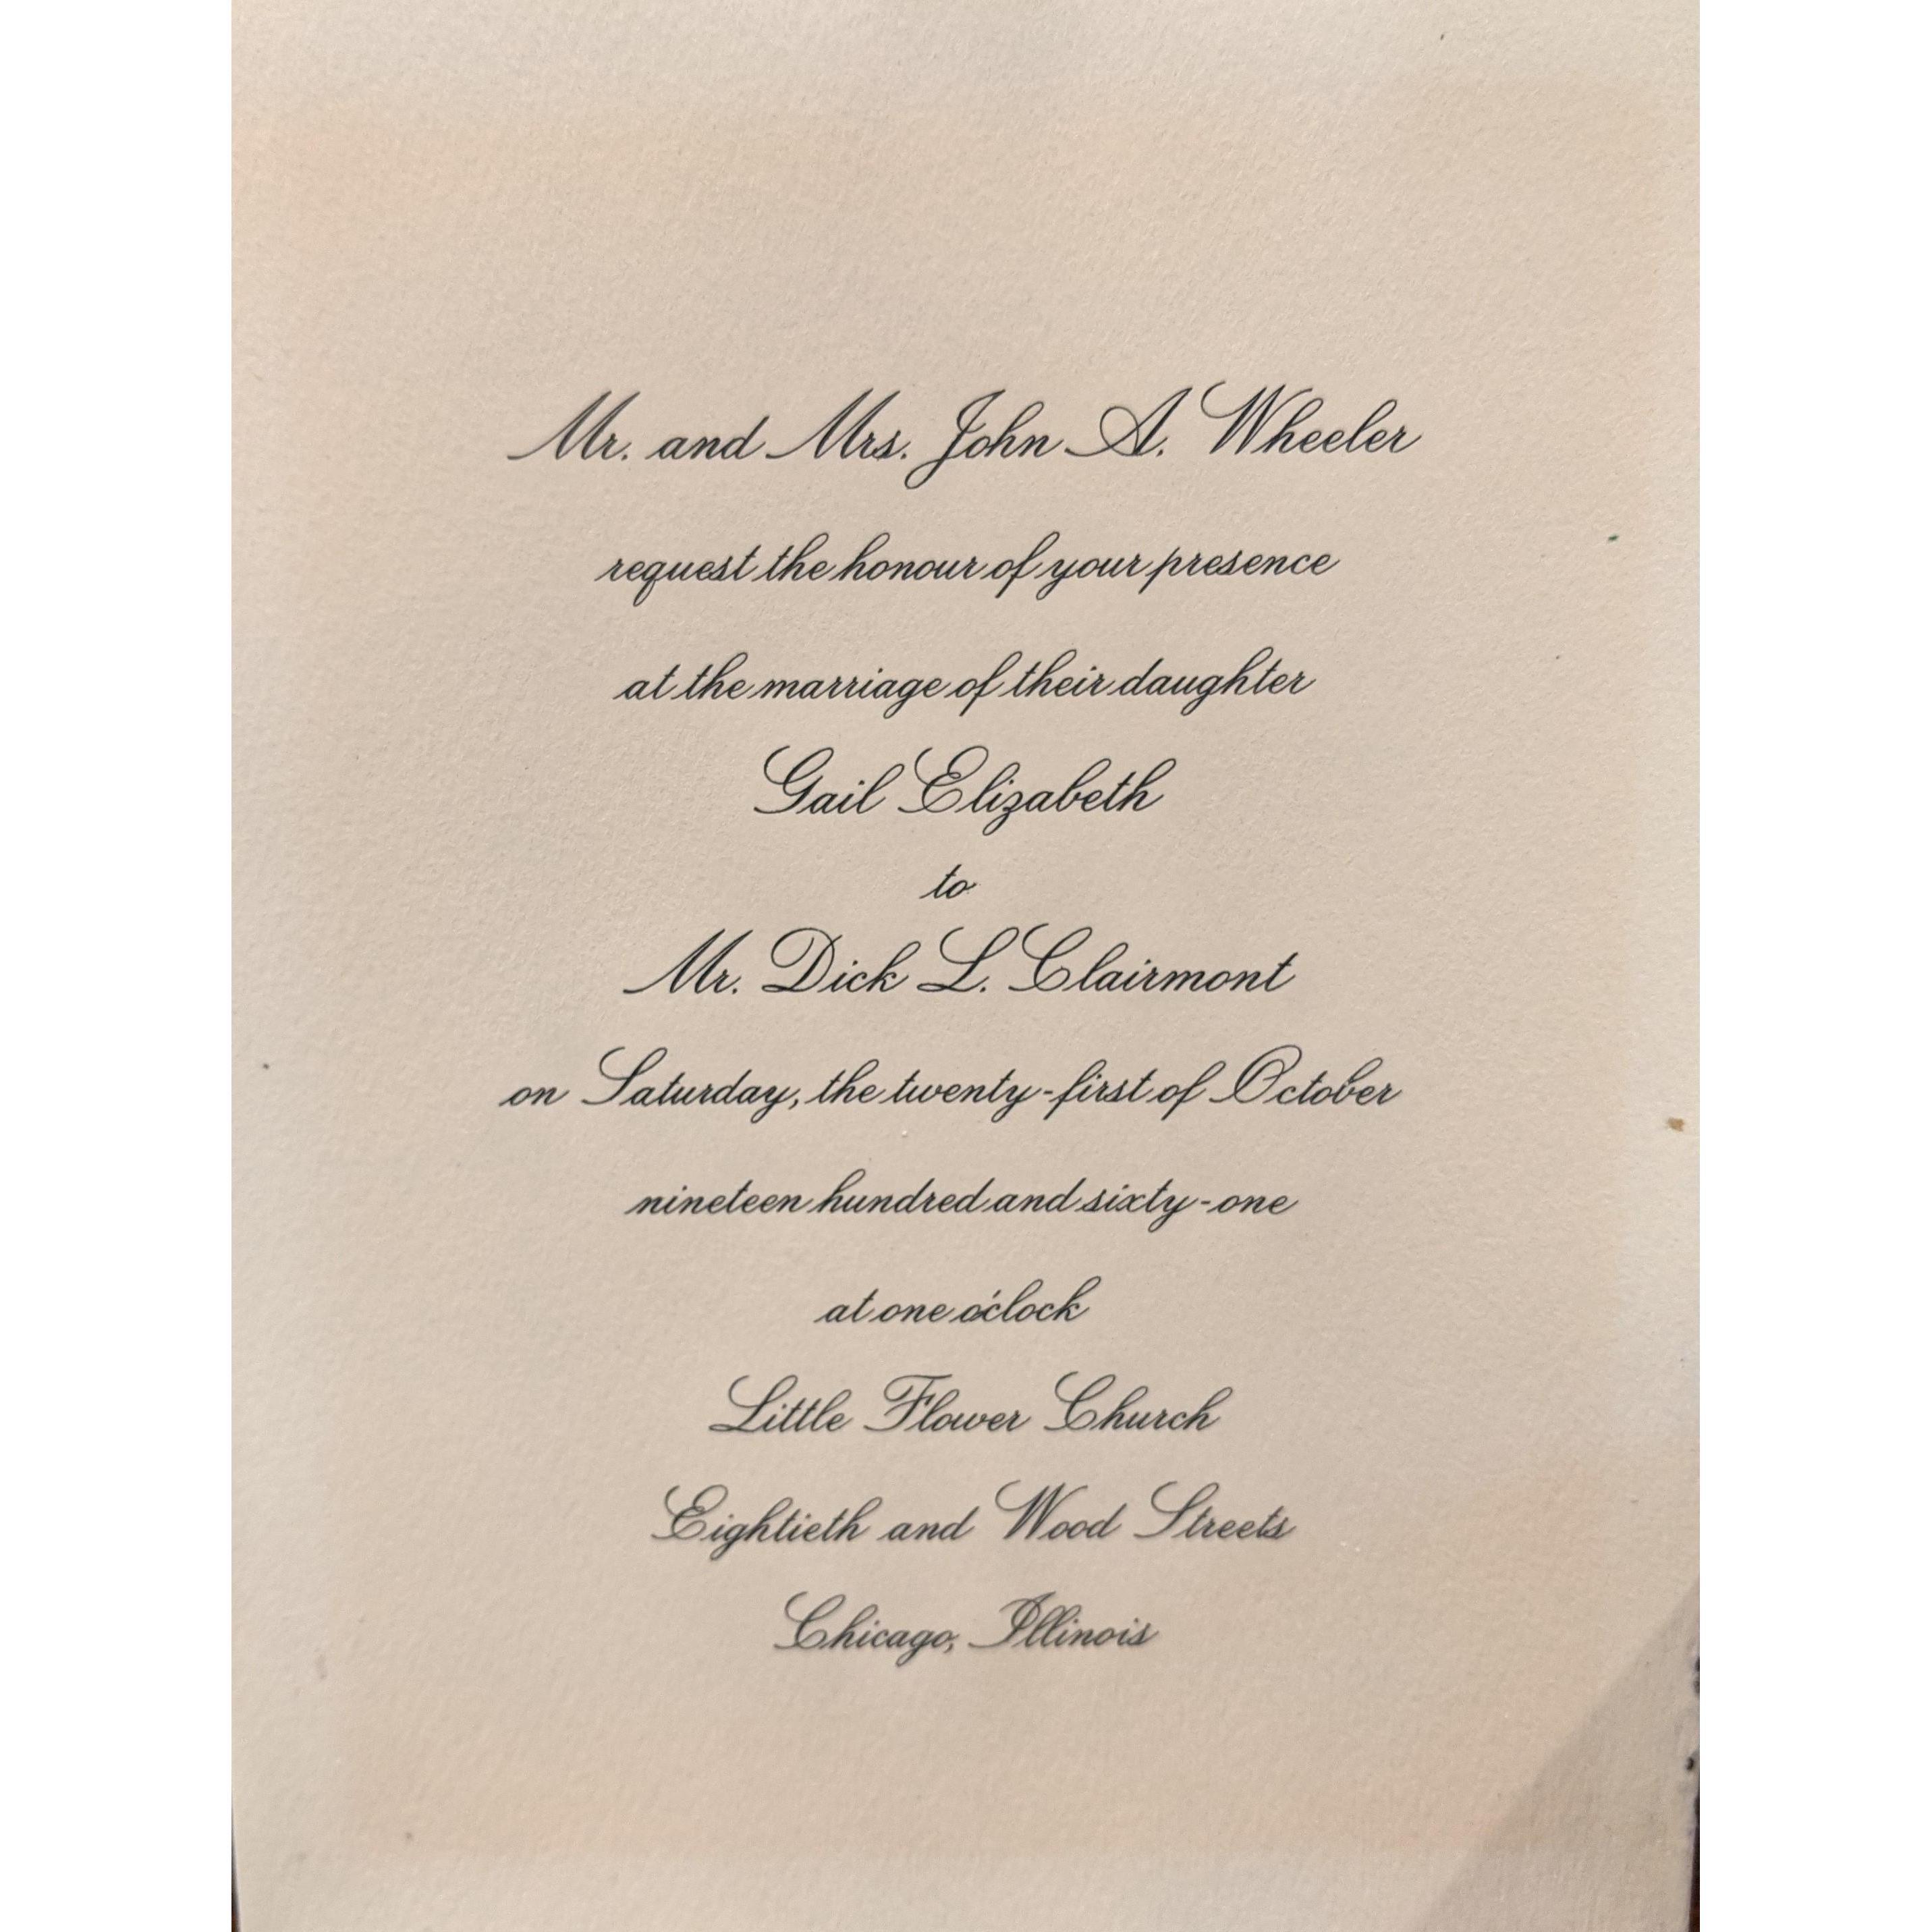 Mr. and Mrs. John A. Wheeler
request the honour of your presence
at the marriage of their daughter
Gail Elizabeth
to
Mr. Dick L. Clairmont
on Saturday, the twenty-first of October
nineteen hundred and sixty-one
at one o'clock
Little Flower Church
Eightieth and Wood Streets
Chicago, Illinois